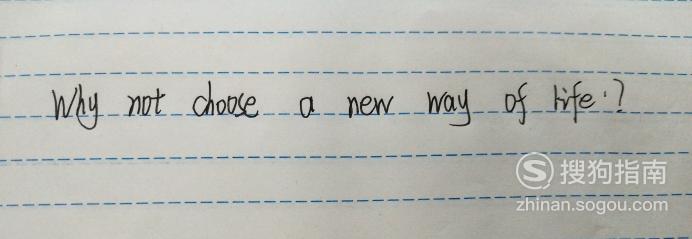 Why not choose a new way of life?
搜狗指南
zhinan.sogou.com